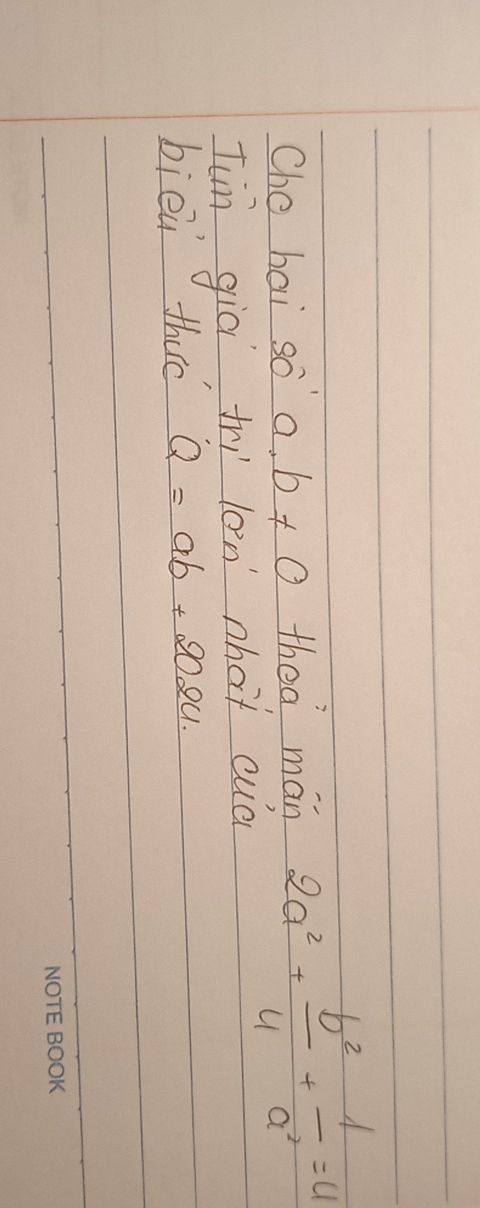 Cho hai số a, b ≠ 0 thoả mãn 2a² + b²/4 + 1/a² = 4
Tìm giá trị lớn nhất của
biểu thức Q = ab + 2024.
NOTE BOOK